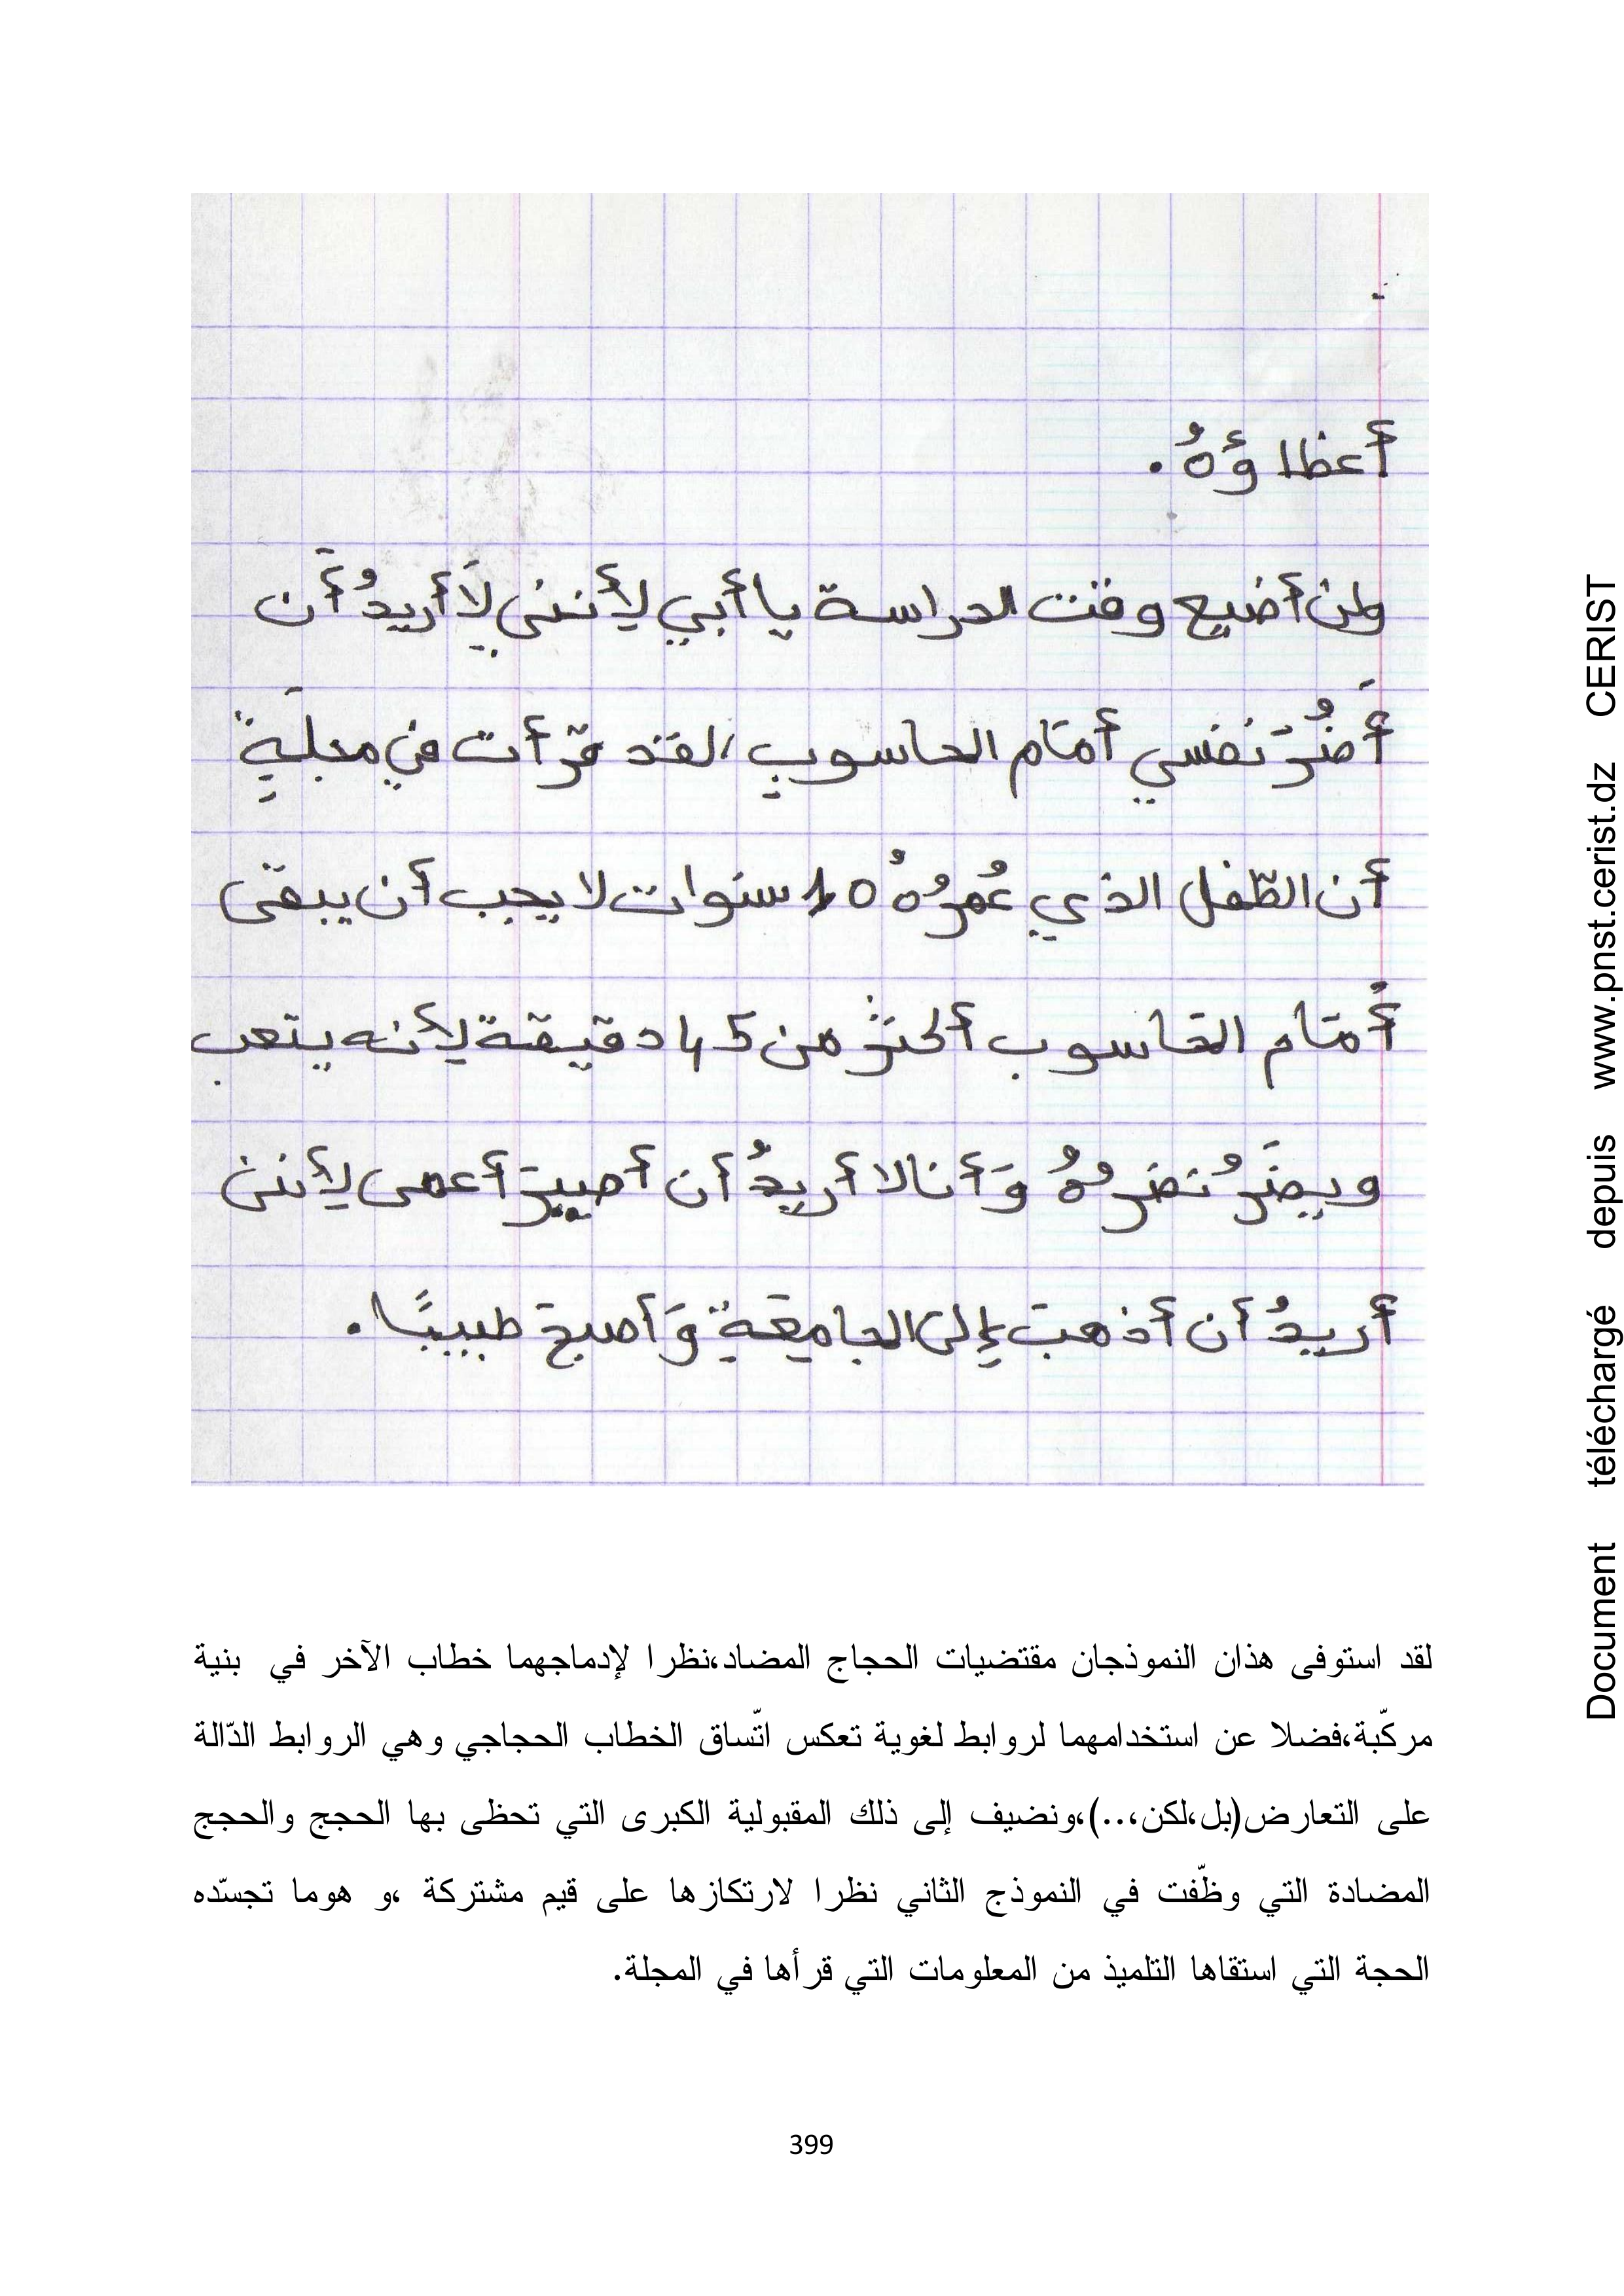 أعظاؤهُ.
ولن أضيع وقت الدراسة يا أبي لِأنني لَا أريدُ أَن
أَضُرّ نفسي أمَام الحاسوبِ، لقد قرأت في مجلَةٍ
أن الطّفل الذي عُمرُهُ 10 سنوات لا يجب أن يبقى
أَمَام الحَاسوب أكثرْ من 45 دقيقة لِأنه يتعب
ويضَرُ نضرهُ وَأنا لا أريدُ أن أصيرَ أعمى لِأنني
أريدُ أن أذهبَ إِلى الجامعَةِ وَأصبحَ طبيبًا.
لقد استوفى هذان النموذجان مقتضيات الحجاج المضاد،نظرا لإدماجهما خطاب الآخر في بنية
مركّبة،فضلا عن استخدامهما لروابط لغوية تعكس اتّساق الخطاب الحجاجي وهي الروابط الدّالة
على التعارض(بل،لكن،..)،ونضيف إلى ذلك المقبولية الكبرى التي تحظى بها الحجج والحجج
المضادة التي وظّفت في النموذج الثاني نظرا لارتكازها على قيم مشتركة ،و هوما تجسّده
الحجة التي استقاها التلميذ من المعلومات التي قرأها في المجلة.
399
Document téléchargé depuis www.pnst.cerist.dz CERIST